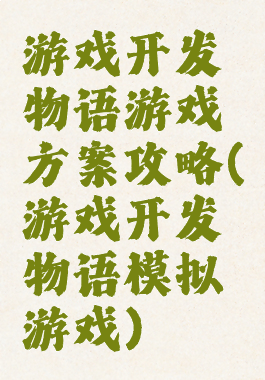 游戏开发
物语游戏
方案攻略(
游戏开发
物语模拟
游戏)